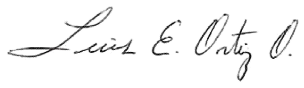 Luis E. Ortiz O.